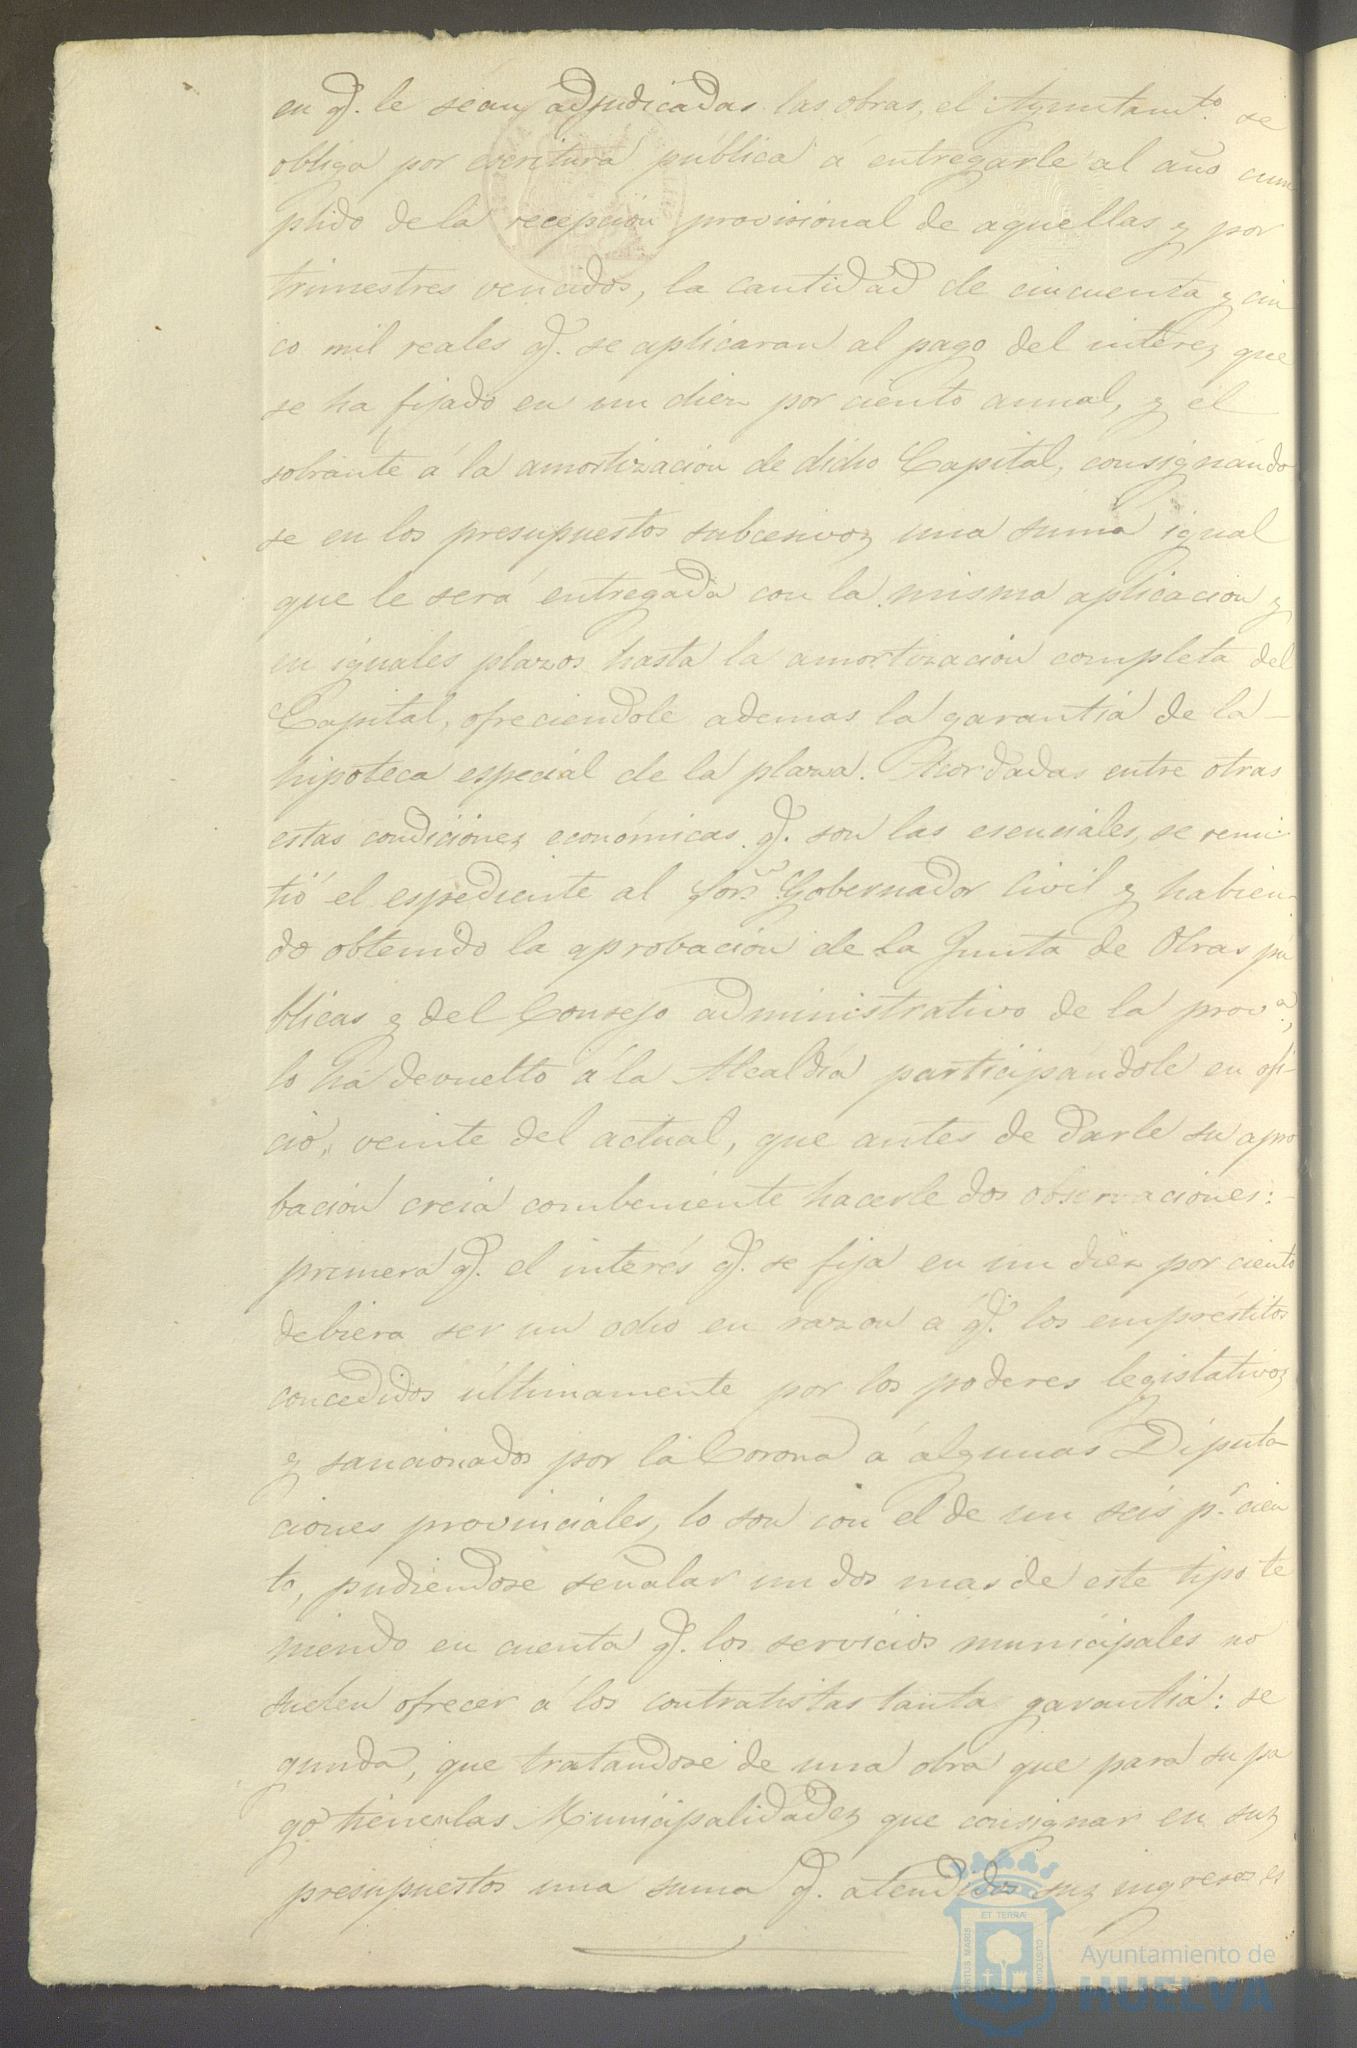 en q.e le sean adjudicadas las obras, el Ayuntam.to se
obliga por escritura pública á entregarle al año cum
plido de la recepción provisional de aquellas y por
trimestres vencidos, la cantidad de cincuenta y cin
co mil reales q. se aplicaran al pago del interez que
se ha fijado en un diez por ciento annal, y el
sobrante á la amortizacion de dicho Capital, consignándo
se en los presupuestos subcesivoz una suma igual
que le será entregada con la misma aplicacion y
en iguales plazos hasta la amortizacion completa del
Capital, ofreciendole ademas la garantia de la
hipoteca especial de la plaza. Acordadas entre otras
estas condicionez económicas q. son las esenciales, se remi
tió el espediente al Sor. Gobernador Civil y habien
do obtenido la aprobacion de la Junta de Obras pú
blicas y del Consejo administrativo de la prov.a,
lo ha devuelto á la Alcaldía participándole en ofi-
cio, veinte del actual, que antes de darle su apro
bacion creia combeniente hacerle dos observaciones:
primera q. el interés q. se fija en un diez por ciento
debiera ser un ocho en razon á q. los empréstitos
concedidos últimamente por los poderes legislativoz
y sancionados por la Corona á algunas Diputa
ciones provinciales, lo son con el de un seis p.r cien
to, pudiendose señalar un dos mas de este tipo te
niendo en cuenta q. los servicios municipales no
suelen ofrecer á los contratistas tanta garantia: se
gunda, que tratandose de una obra que para su pa
go tienen las Municipalidadez que consignar en suz
presupuestos una suma q. atendidos suz ingresos es
ET TERRÆ
CUSTODIA
Ayuntamiento de
HUELVA